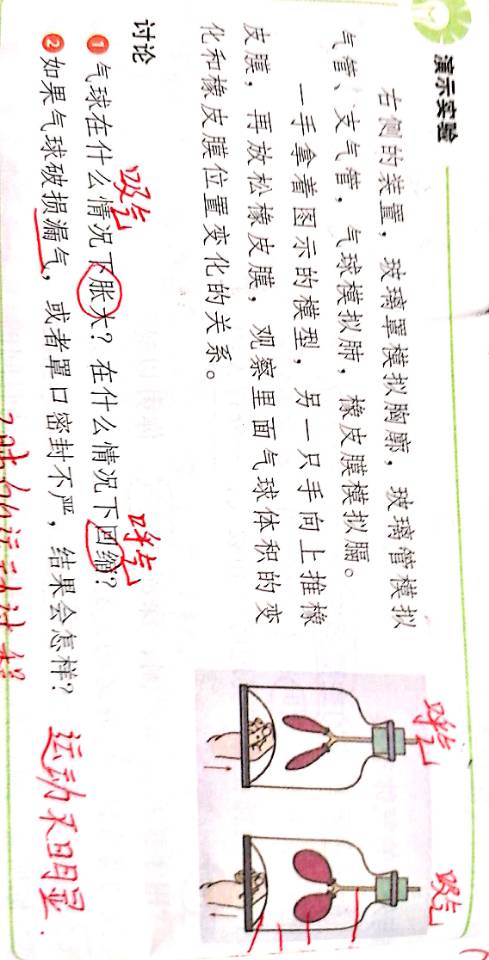 演示实验
右侧的装置，玻璃罩模拟胸廓，玻璃管模拟
气管、支气管，气球模拟肺，橡皮膜模拟膈。
一手拿着图示的模型，另一只手向上推橡
皮膜，再放松橡皮膜，观察里面气球体积的变
化和橡皮膜位置变化的关系。
呼气
吸气
讨论
吸气
呼气
1 气球在什么情况下胀大？在什么情况下回缩？
2 如果气球破损漏气，或者罩口密封不严，结果会怎样？
运动不明显.